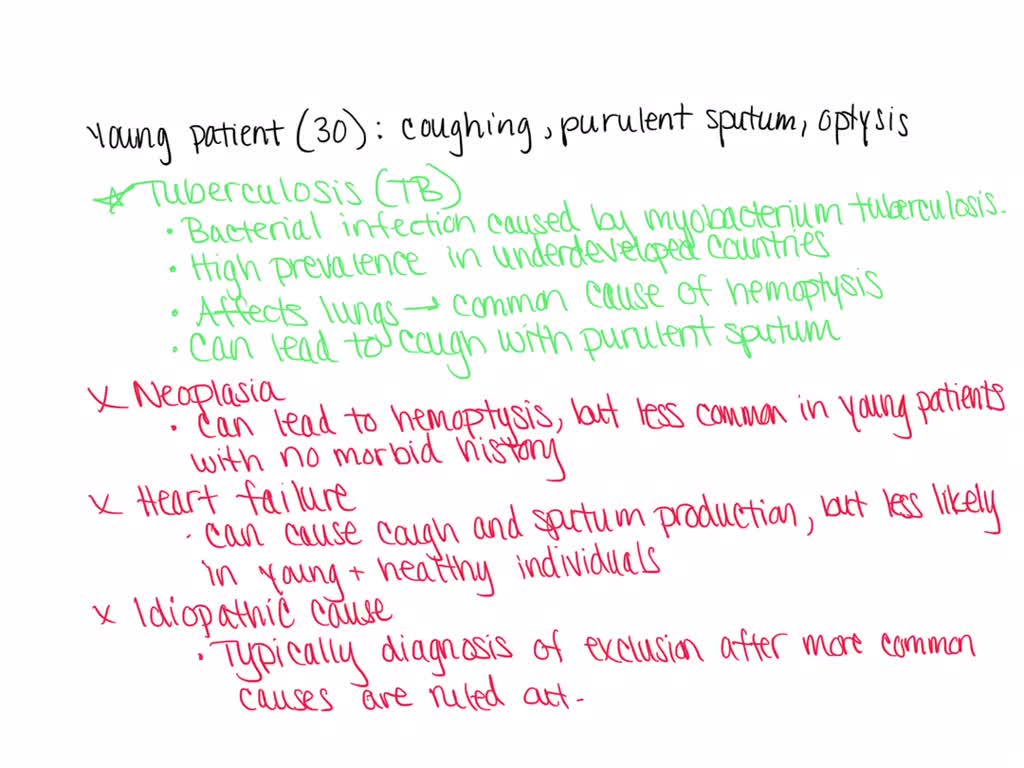 Young patient (30): coughing, purulent sputum, optysis
☆ Tuberculosis (TB)
• Bacterial infection caused by myobacterium tuberculosis.
• High prevalence in underdeveloped countries
• Affects lungs → common cause of hemoptysis
• Can lead to cough with purulent sputum
X Neoplasia
• can lead to hemoptysis, but less common in young patients
with no morbid history
X Heart failure
• can cause cough and sputum production, but less likely
in young + healthy individuals
X Idiopathic cause
• Typically diagnosis of exclusion after more common
causes are ruled out.